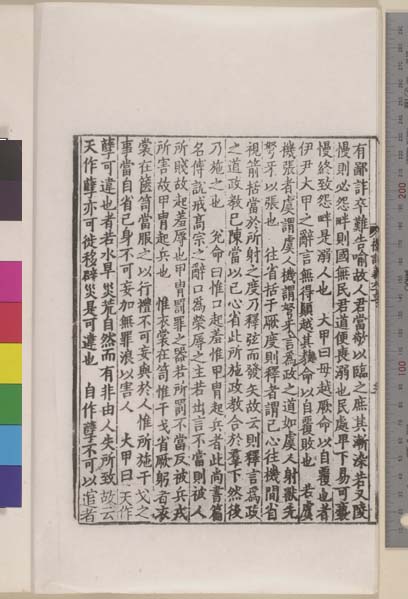 有鄙詐卒難告喻故人君當敬以臨之庶其漸染若又陵
慢則必怨畔則國無民君道便喪溺也民處卑下易可褻
慢終致怨畔是溺人也　大甲曰毋越厥命以自覆也者
伊尹大甲之辭言無得顛越其教命以自覆敗也　若虞
機張者虞謂虞人機謂弩牙言為政之道如虞人射獸先
弩牙以張也　往省括于厥度則釋者謂已心往機間省
視箭括當於所射之度乃釋弦而發矢故云則釋言為政
之道政教已陳當以己心省此所施政教合於羣下然後
乃施之也　兊命曰惟口起羞惟甲胄起兵者此尚書篇
名傅說戒高宗之辭口為榮辱之主若出言不當則被人
所賤故起羞辱也甲胄罰罪之器若所罰不當反被兵戎
所害故甲胄起兵也　惟衣裳在笥惟干戈省厥躬者衣
裳在篋笥當服之以行禮不可妄與於人惟所施干戈之
事當自省己身不可妄加無罪浪以害人　大甲曰天作
孽可違也者若水旱災荒自然而有非由人失所致故云
天作孽亦可從移辟災是可違也　自作孽不可以逭者
200
100